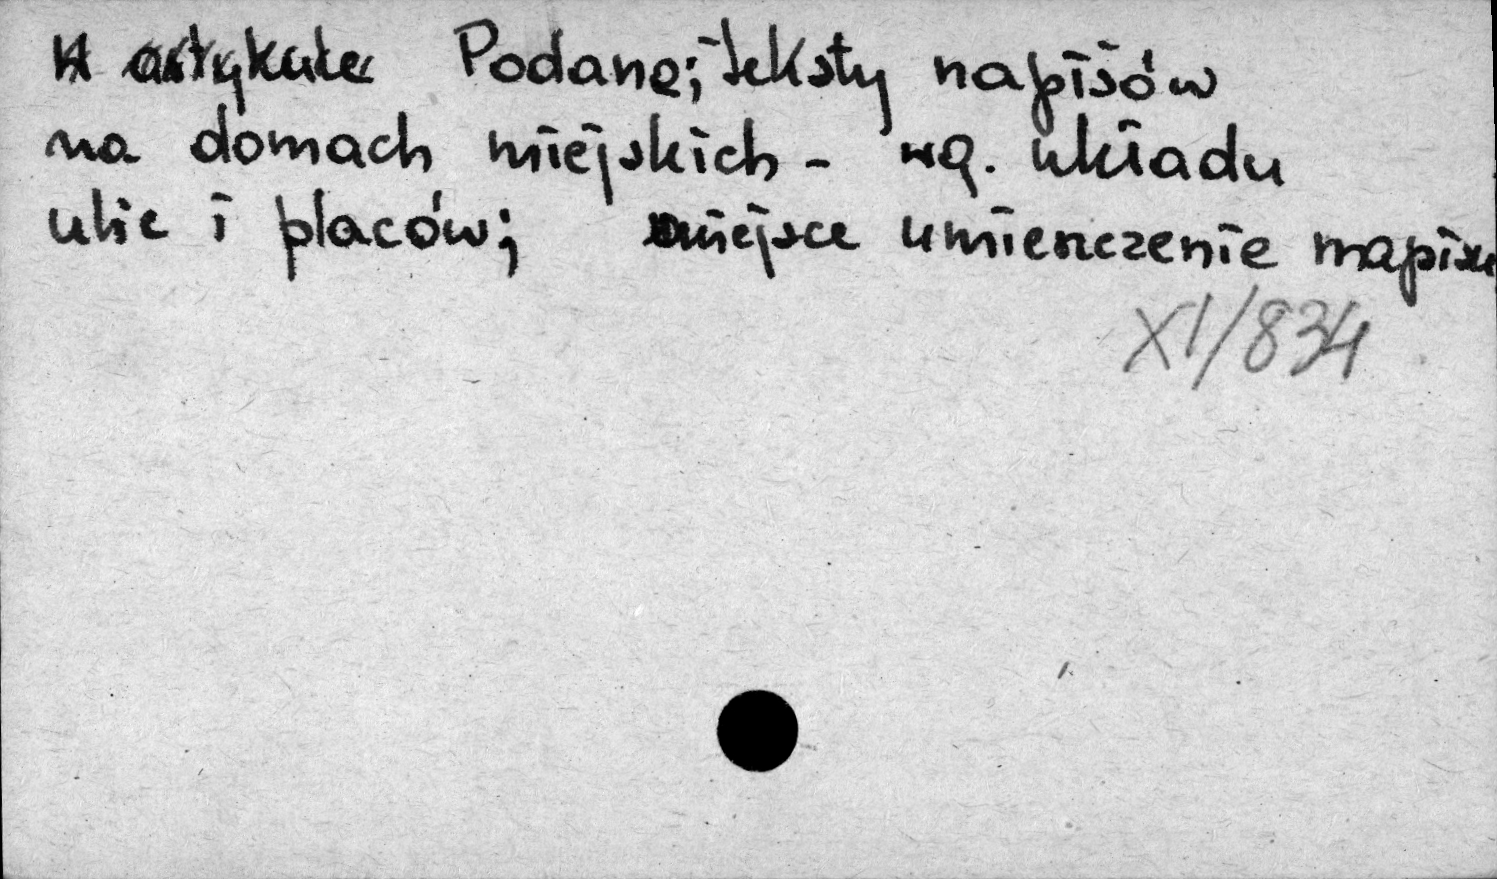 W artykule Podane; teksty napisów
na domach miejskich - wg. układu
ulic i placów; miejsce umieszczenie napisu
XI/834